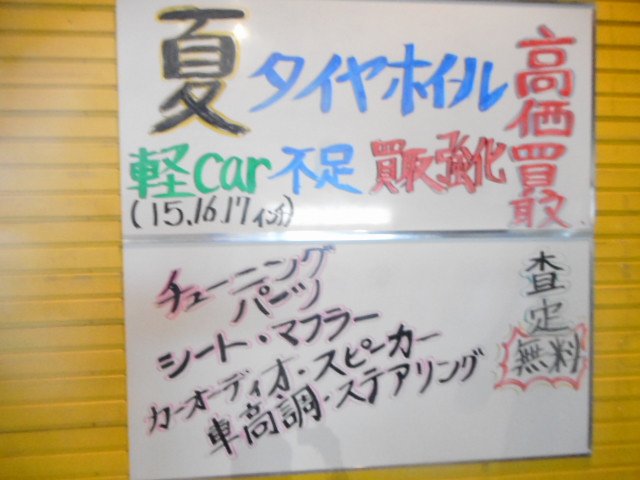 夏 タイヤホイール
高価買取
軽car 不足 買取強化
(15.16 17 インチ)
チューニング
パーツ
シート・マフラー
カーオーディオ・スピーカー
車高調・ステアリング
査定
無料